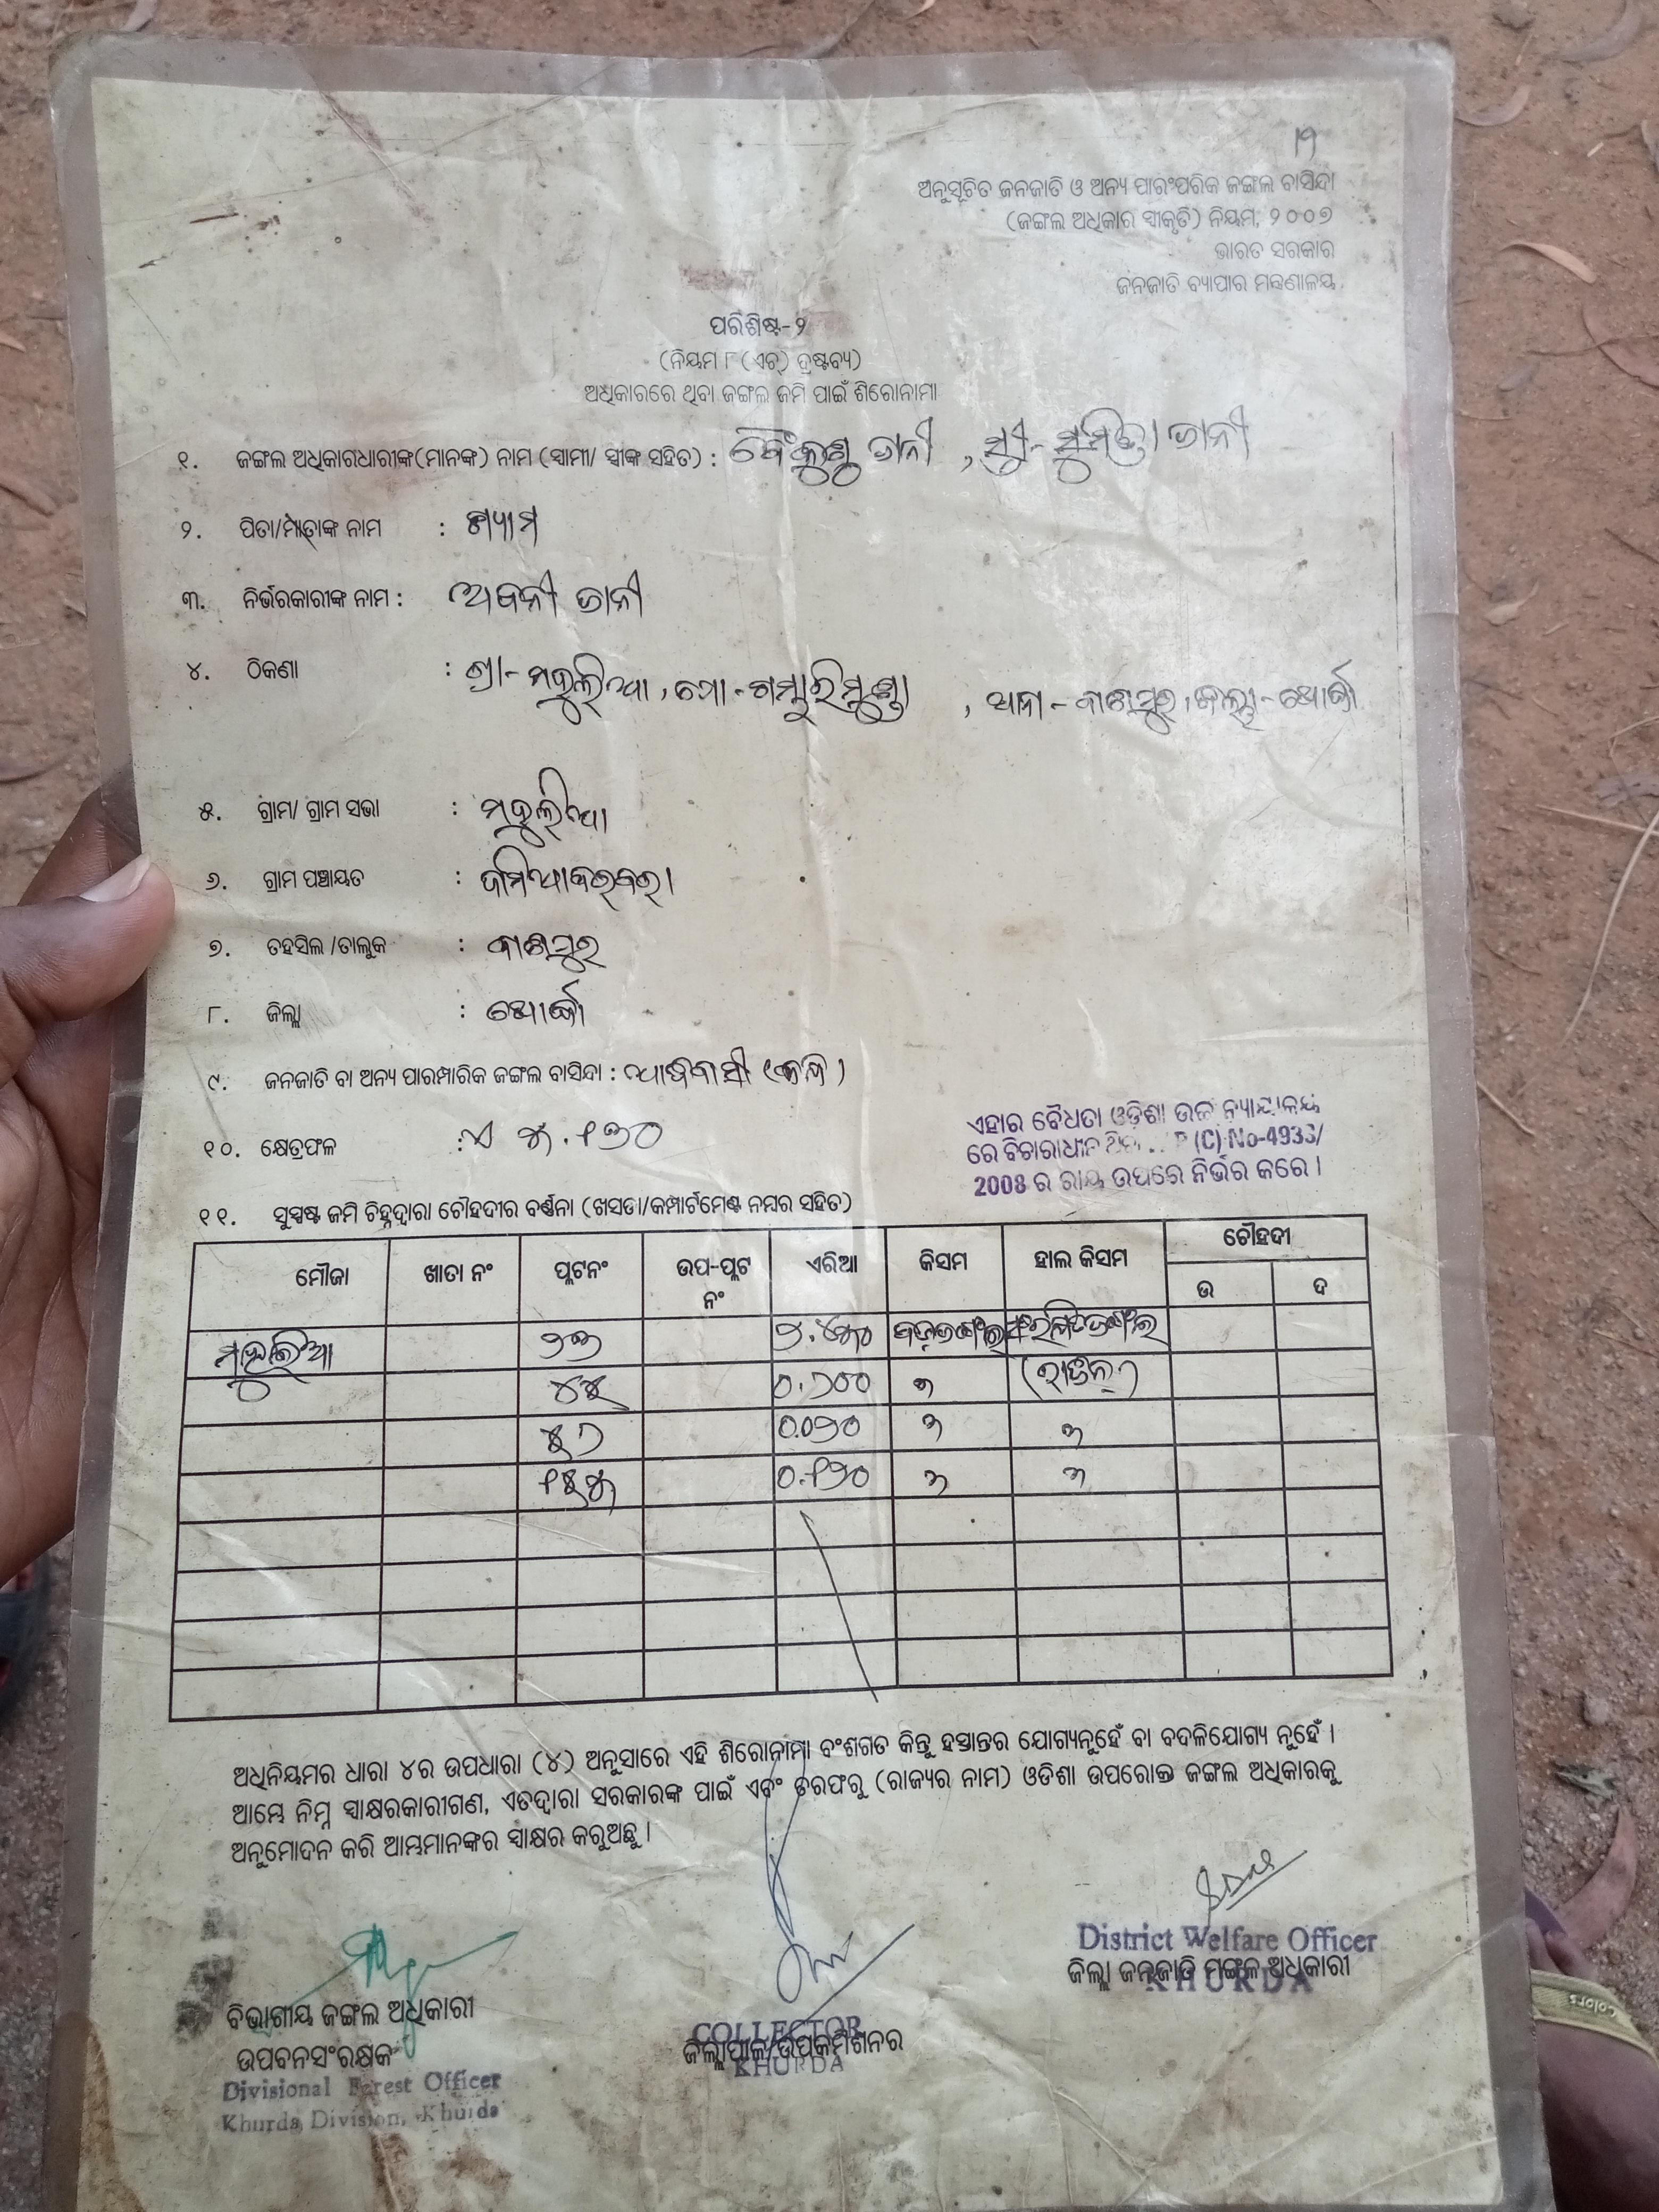 ୩୨
ଅନୁସୂଚିତ ଜନଜାତି ଓ ଅନ୍ୟ ପାରଂପରିକ ଜଙ୍ଗଲ ବାସିନ୍ଦା
(ଜଙ୍ଗଲ ଅଧିକାର ସ୍ୱୀକୃତି) ନିୟମ, ୨୦୦୭
ଭାରତ ସରକାର
ଜନଜାତି ବ୍ୟାପାର ମନ୍ତ୍ରଣାଳୟ
ପରିଶିଷ୍ଟ-୨
(ନିୟମ ୮ (ଏଚ୍) ଦ୍ରଷ୍ଟବ୍ୟ)
ଅଧିକାରରେ ଥିବା ଜଙ୍ଗଲ ଜମି ପାଇଁ ଶିରୋନାମା
୧. ଜଙ୍ଗଲ ଅଧିକାରଧାରୀଙ୍କ(ମାନଙ୍କ) ନାମ (ସ୍ୱାମୀ/ ସ୍ତ୍ରୀଙ୍କ ସହିତ) : ବୈକୁଣ୍ଠ ଜାନୀ , ସ୍ତ୍ରୀ- ସୁମିତ୍ରା ଜାନୀ
୨. ପିତା/ମାତାଙ୍କ ନାମ : ଶ୍ୟାମ
୩. ନିର୍ଭରକାରୀଙ୍କ ନାମ : ଅବନୀ ଜାନୀ
୪. ଠିକଣା : ଗ୍ରା- ମହୁଲିଆ , ପୋ - ଗମ୍ଭାରିମୁଣ୍ଡା , ଥାନା - ବାଣପୁର , ଜିଲ୍ଲା - ଖୋର୍ଦ୍ଧା
୫. ଗ୍ରାମ/ ଗ୍ରାମ ସଭା : ମହୁଲିଆ
୬. ଗ୍ରାମ ପଞ୍ଚାୟତ :
୭. ତହସିଲ /ତାଲୁକ : ବାଣପୁର
୮. ଜିଲ୍ଲା : ଖୋର୍ଦ୍ଧା
୯. ଜନଜାତି ବା ଅନ୍ୟ ପାରମ୍ପାରିକ ଜଙ୍ଗଲ ବାସିନ୍ଦା : ଆଦିବାସୀ (କନ୍ଧ)
୧୦. କ୍ଷେତ୍ରଫଳ :
ଏହାର ବୈଧତା ଓଡ଼ିଶା ଉଚ୍ଚ ନ୍ୟାୟାଳୟ
ରେ ବିଚାରାଧୀନ (C) No-4933/
2008 ର ରାୟ ଉପରେ ନିର୍ଭର କରେ ।
୧୧. ସୁସ୍ପଷ୍ଟ ଜମି ଚିହ୍ନଦ୍ୱାରା ଚୌହଦୀର ବର୍ଣ୍ଣନା (ଖସଡା/କମ୍ପାର୍ଟମେଣ୍ଟ ନମ୍ବର ସହିତ)
ମୌଜା ଖାତା ନଂ ପ୍ଲଟନଂ ଉପ-ପ୍ଲଟ ନଂ ଏରିଆ କିସମ ହାଲ କିସମ ଚୌହଦୀ
ଉ ଦ
ମହୁଲିଆ
ଅଧିନିୟମର ଧାରା ୪ର ଉପଧାରା (୪) ଅନୁସାରେ ଏହି ଶିରୋନାମା ବଂଶଗତ କିନ୍ତୁ ହସ୍ତାନ୍ତର ଯୋଗ୍ୟନୁହେଁ ବା ବଦଳିଯୋଗ୍ୟ ନୁହେଁ ।
ଆମ୍ଭେ ନିମ୍ନ ସ୍ୱାକ୍ଷରକାରୀଗଣ, ଏତଦ୍ୱାରା ସରକାରଙ୍କ ପାଇଁ ଏବଂ ତରଫରୁ (ରାଜ୍ୟର ନାମ) ଓଡିଶା ଉପରୋକ୍ତ ଜଙ୍ଗଲ ଅଧିକାରକୁ
ଅନୁମୋଦନ କରି ଆମ୍ଭମାନଙ୍କର ସ୍ୱାକ୍ଷର କରୁଅଛୁ ।
District Welfare Officer
ଜିଲ୍ଲା ଜନଜାତି ମଙ୍ଗଳ ଅଧିକାରୀ
KHURDA
ବିଭାଗୀୟ ଜଙ୍ଗଲ ଅଧିକାରୀ
ଉପବନସଂରକ୍ଷକ
Divisional Forest Officer
Khurda Division, Khurda
COLLECTOR
ଜିଲ୍ଲାପାଳ/ଉପକମିଶନର
KHURDA
colors